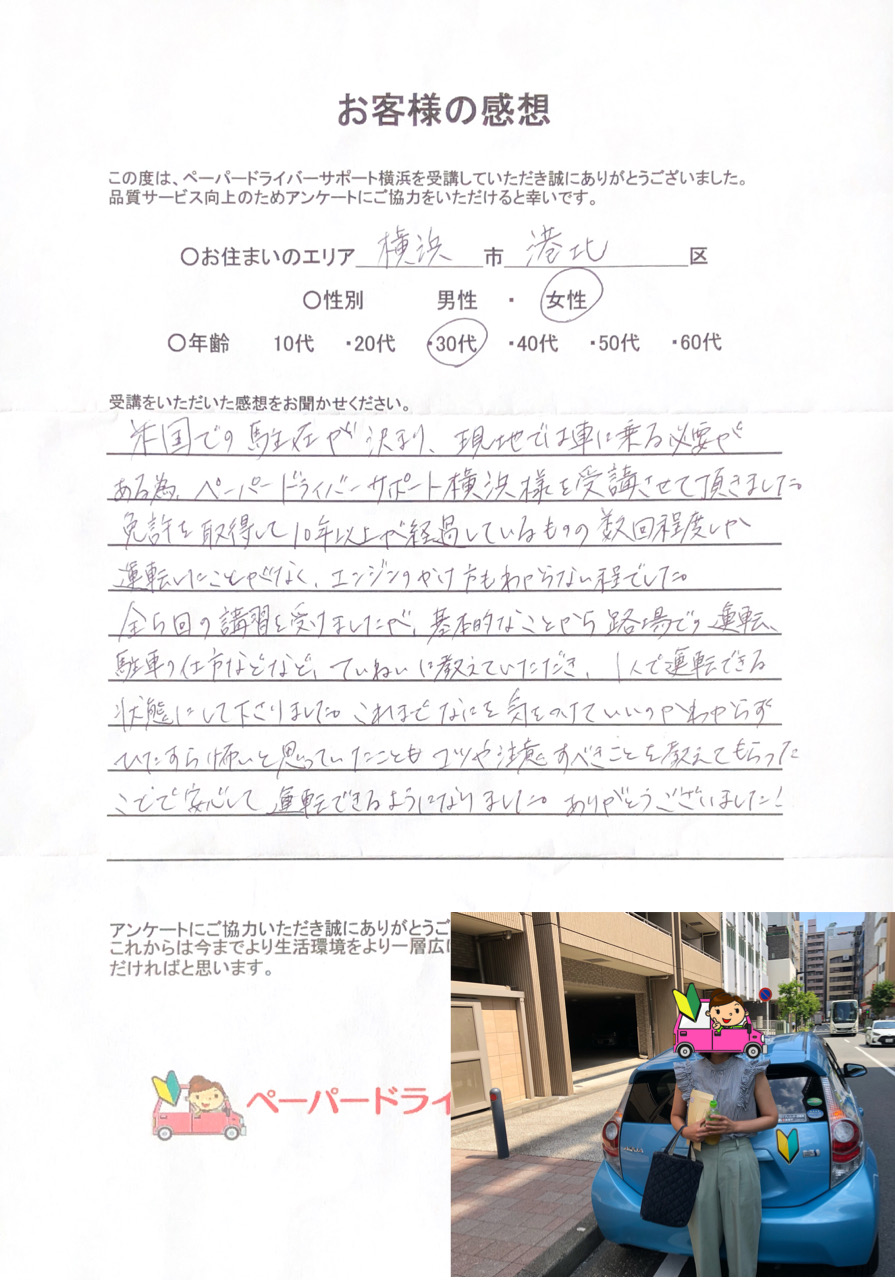 お客様の感想
この度は、ペーパードライバーサポート横浜を受講していただき誠にありがとうございました。
品質サービス向上のためアンケートにご協力をいただけると幸いです。
〇お住まいのエリア 横浜 市 港北 区
〇性別 男性 ・ 女性
〇年齢 10代 ・20代 ・30代 ・40代 ・50代 ・60代
受講をいただいた感想をお聞かせください。
米国での駐在が決まり、現地では車に乗る必要が
ある為、ペーパードライバーサポート横浜様を受講させて頂きました。
免許を取得して10年以上が経過しているものの数回程度しか
運転したことがなく、エンジンのかけ方もわからない程でした。
全5回の講習を受けましたが、基本的なことから路上場での運転、
駐車の仕方などなど、ていねいに教えていただき、1人で運転できる
状態にして下さりました。これまでなにを気をつけていいのかわからず
ひたすら怖いと思っていたこともコツや注意すべきことを教えてもらった
ことで安心して運転できるようになりました。ありがとうございました!
アンケートにご協力いただき誠にありがとうご
これからは今までより生活環境をより一層広
だければと思います。
ペーパードライ
AQUA